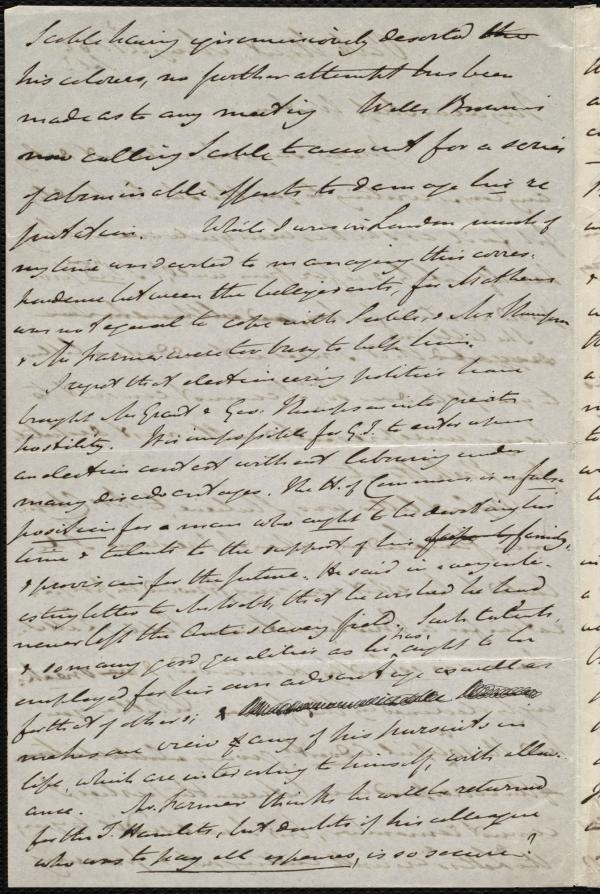 Scoble having ignominiously deserted
his colours, no further attempt has been
made as to any meeting Wells Brown is
now calling Scoble to account for a series
of abominable efforts to damage his re
putation. While I was in London much of
my time was devoted to managing this corres-
pondence between the belligerents, for Mathews
was not equal to cope with Scoble, & Mr Thompson
& Mr Farmer were too busy to help him.
I regret that electioneering politics have
brought Mr Grant & Geo. Thompson into positive
hostility. It is impossible for G.T. to enter upon
an election contest without labouring under
many disadvantages. The H. of Commons is a false
position for a man who ought to be devoting his
time & talents to the support of his family,
& provision for the future. He said in a very inte-
resting letter to Mr Webb, that he wished he had
never left the Anti-slavery field. Such talents,
& so many good qualities as he has ought to be
employed for his own advantage as well as
for that of others; &
makes one view any of his pursuits in
life, which are interesting to himself, with allow-
ance. Mr. Farmer thinks he will be returned
for the T. Hamlets, but doubts if his colleague
who was to pay all expenses, is so secure.